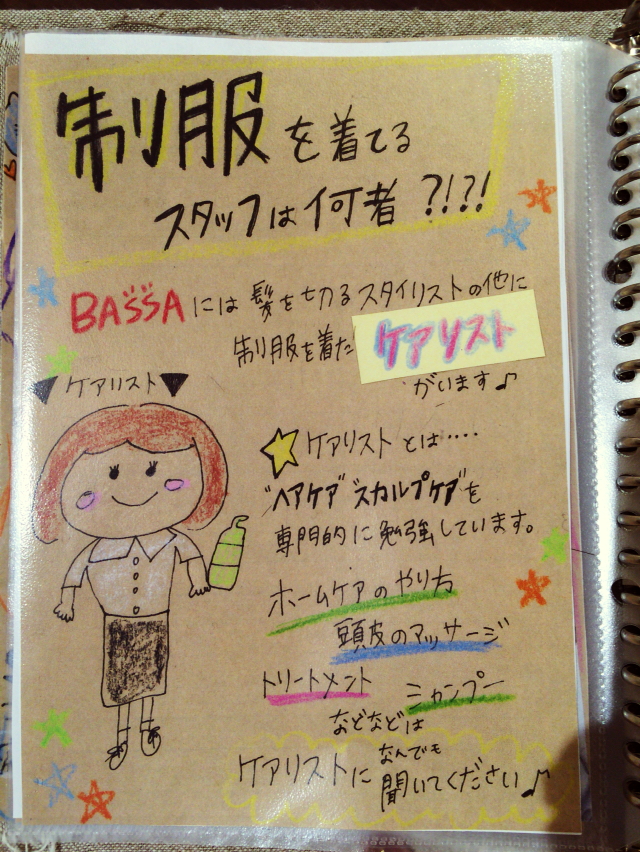 制服を着てる
スタッフは何者?!?!
BASSAには髪を切るスタイリストの他に
制服を着たケアリスト
がいます♪
▼ケアリスト▼
☆ケアリストとは‥‥
"ヘアケア" "スカルプケア"を
専門的に勉強しています。
ホームケアのやり方
頭皮のマッサージ
トリートメント シャンプー
などなどは
ケアリストになんでも
聞いてください♪